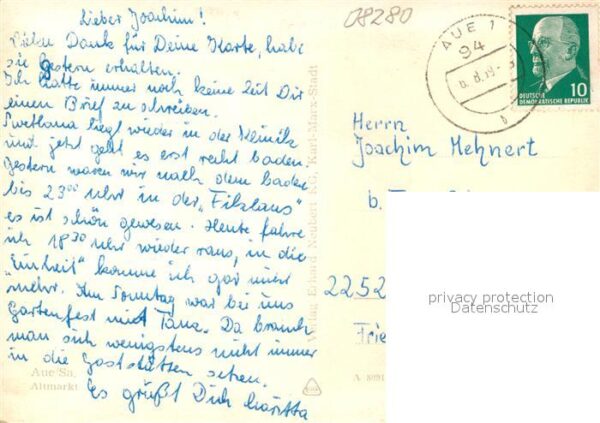 Lieber Joachim!
Vielen Dank für Deine Karte, habe
sie gestern erhalten.
Ich hatte immer noch keine Zeit Dir
einen Brief zu schreiben.
Swetlana liegt wieder in der Klinik
und jetzt geht es erst recht baden.
Gestern waren wir nach dem baden
bis 23⁰⁰ Uhr in der „Filzlaus"
es ist schön gewesen. Heute fahre
ich 18³⁰ Uhr wieder raus, in die
„Einheit" komme ich gar nicht
mehr. Am Sonntag war bei uns
Gartenfest mit Tanz. Da brauch
man sich wenigstens nicht immer
in die Gaststätten setzen.
Es grüßt Dich
Aue/Sa.
Altmarkt
08280
AUE 1
94
b
DEUTSCHE
DEMOKRATISCHE REPUBLIK
10
Herrn
Joachim Mehnert
b.
2252
Frie
Verlag Erhard Neubert KG, Karl-Marx-Stadt
privacy protection
Datenschutz